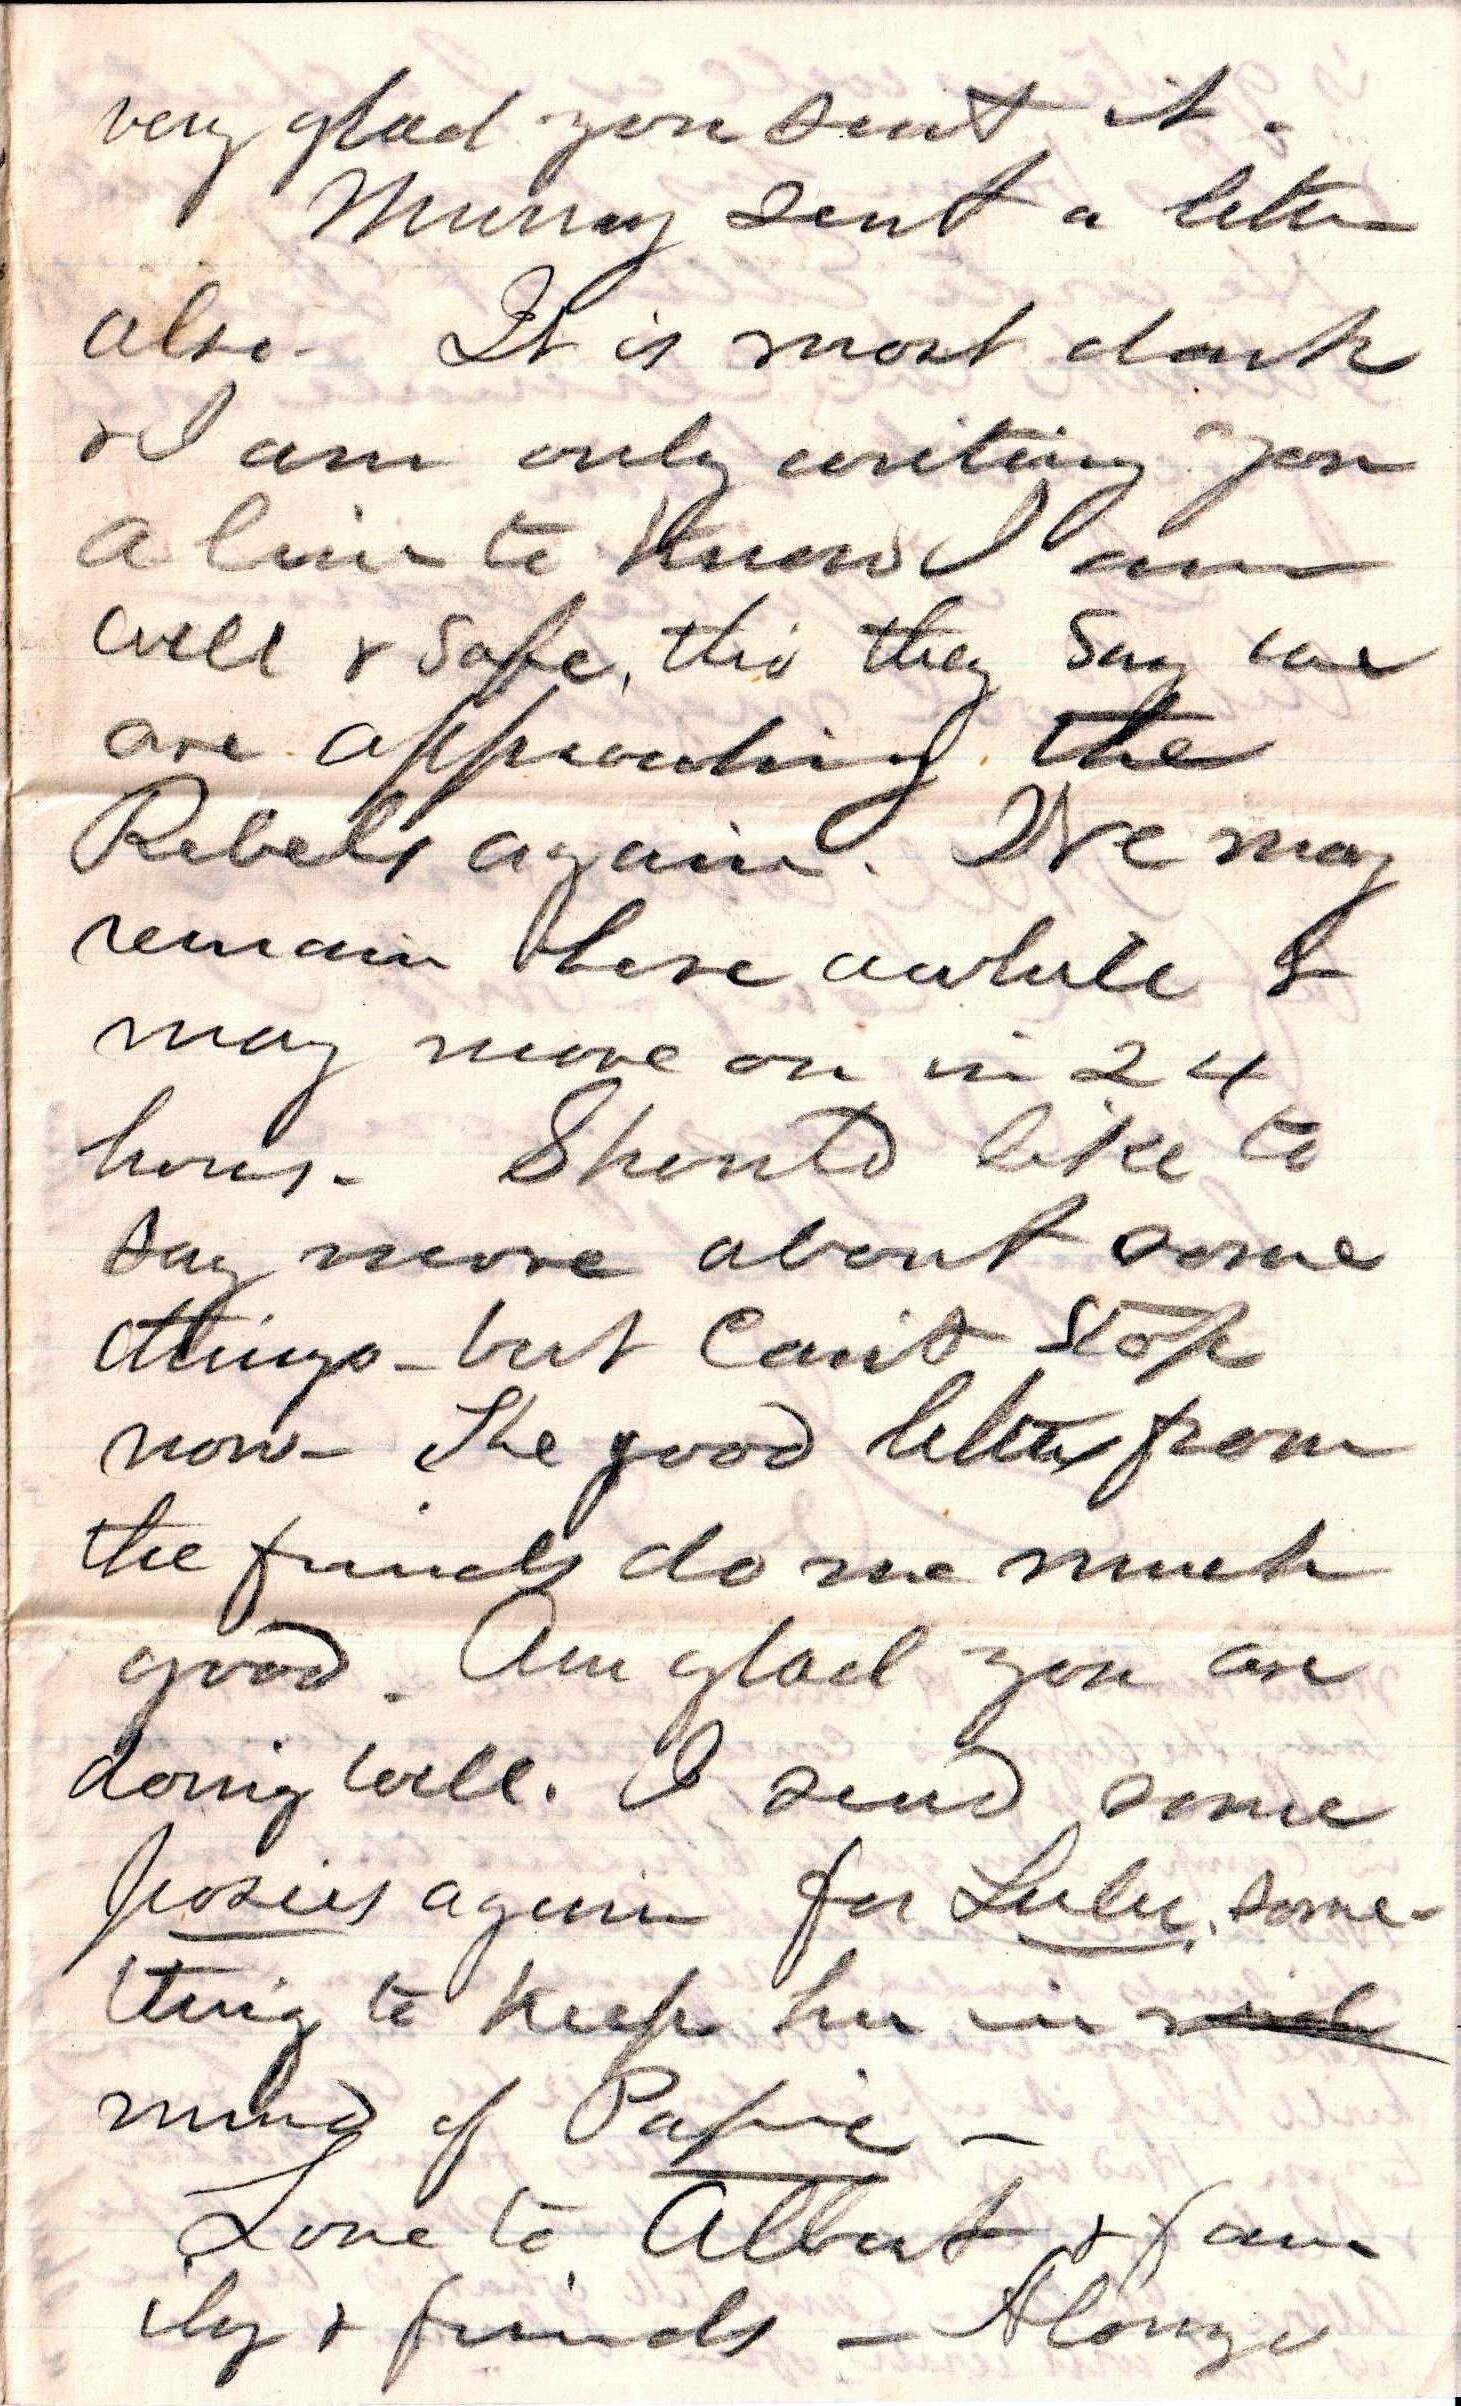 very glad you sent it -
Murray sent a letter
also - It is most dark
& I am only writing you
a line to know I am
well & safe, tho they say we
are approaching the
Rebels again. We may
remain here awhile &
may move on in 24
hours - Should like to
say more about some
things - but Can't stop
now - The good letters from
the friends do me much
good - Am glad you are
doing well. I send some
posies again for Lulu, some-
thing to keep her in
mind of Papie -
Love to Albert & fam-
ily & friends - Alonzo